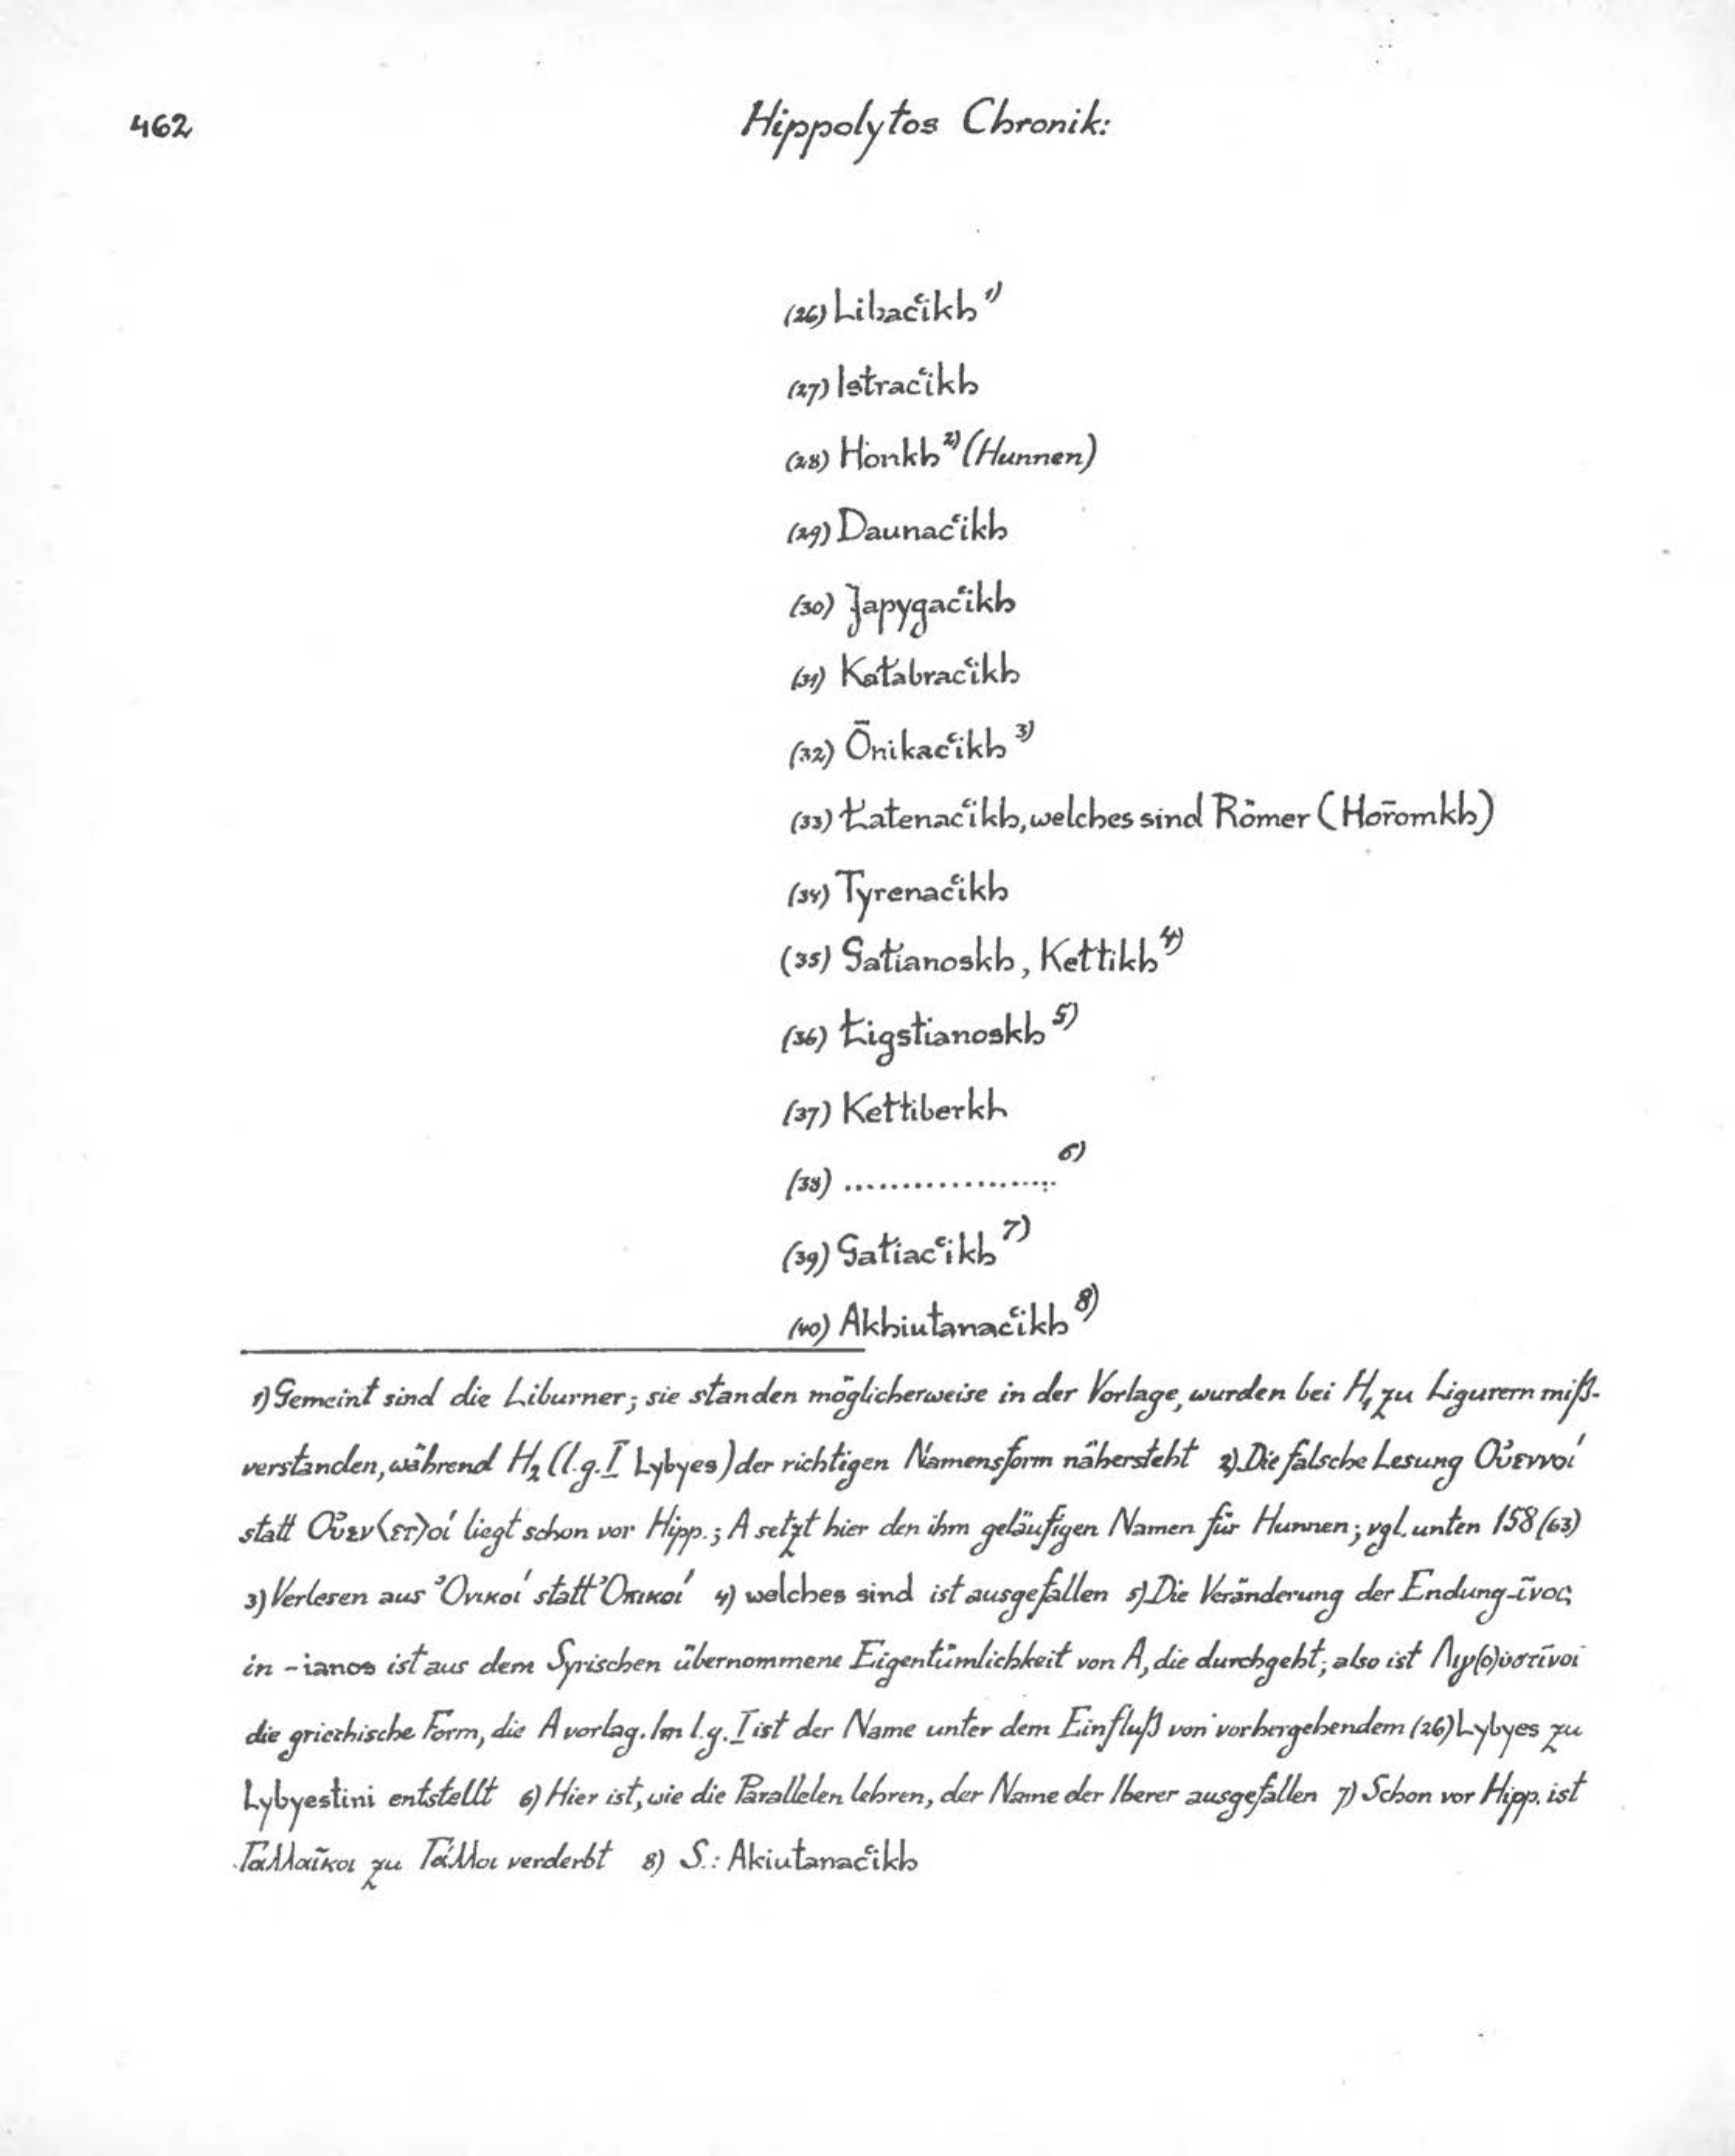 462
Hippolytos Chronik:
(26) Libac̔ikh 1)
(27) Istrac̔ikh
(28) Honkh 2) (Hunnen)
(29) Daunac̔ikh
(30) Japygac̔ikh
(31) Kałabrac̔ikh
(32) Ōnikac̔ikh 3)
(33) Łatenac̔ikh, welches sind Römer (Hor̄omkh)
(34) Tyrenac̔ikh
(35) Gałianoskh, Kełtikh 4)
(36) Łigstianoskh 5)
(37) Kełtiberkh
(38) ...................... 6)
(39) Gałiac̔ikh 7)
(40) Akhiutanac̔ikh 8)
1) Gemeint sind die Liburner; sie standen möglicherweise in der Vorlage, wurden bei H₁ zu Ligurern miß-
verstanden, während H₂ (l.g. I Lybyes) der richtigen Namensform nähersteht 2) Die falsche Lesung Οὐεννοί
statt Οὐεν〈ετ〉οί liegt schon vor Hipp.; A setzt hier den ihm geläufigen Namen für Hunnen; vgl. unten 158 (63)
3) Verlesen aus Ὀνικοί statt Ὀπικοί 4) welches sind ist ausgefallen 5) Die Veränderung der Endung -ῖνος
in -ianos ist aus dem Syrischen übernommene Eigentümlichkeit von A, die durchgeht; also ist Λιγ(ο)υστῖνοι
die griechische Form, die A vorlag. Im l.g. I ist der Name unter dem Einfluß von vorhergehendem (26) Lybyes zu
Lybyestini entstellt 6) Hier ist, wie die Parallelen lehren, der Name der Iberer ausgefallen 7) Schon vor Hipp. ist
Γαλλαῖκοι zu Γάλλοι verderbt 8) S.: Akiutanac̔ikh